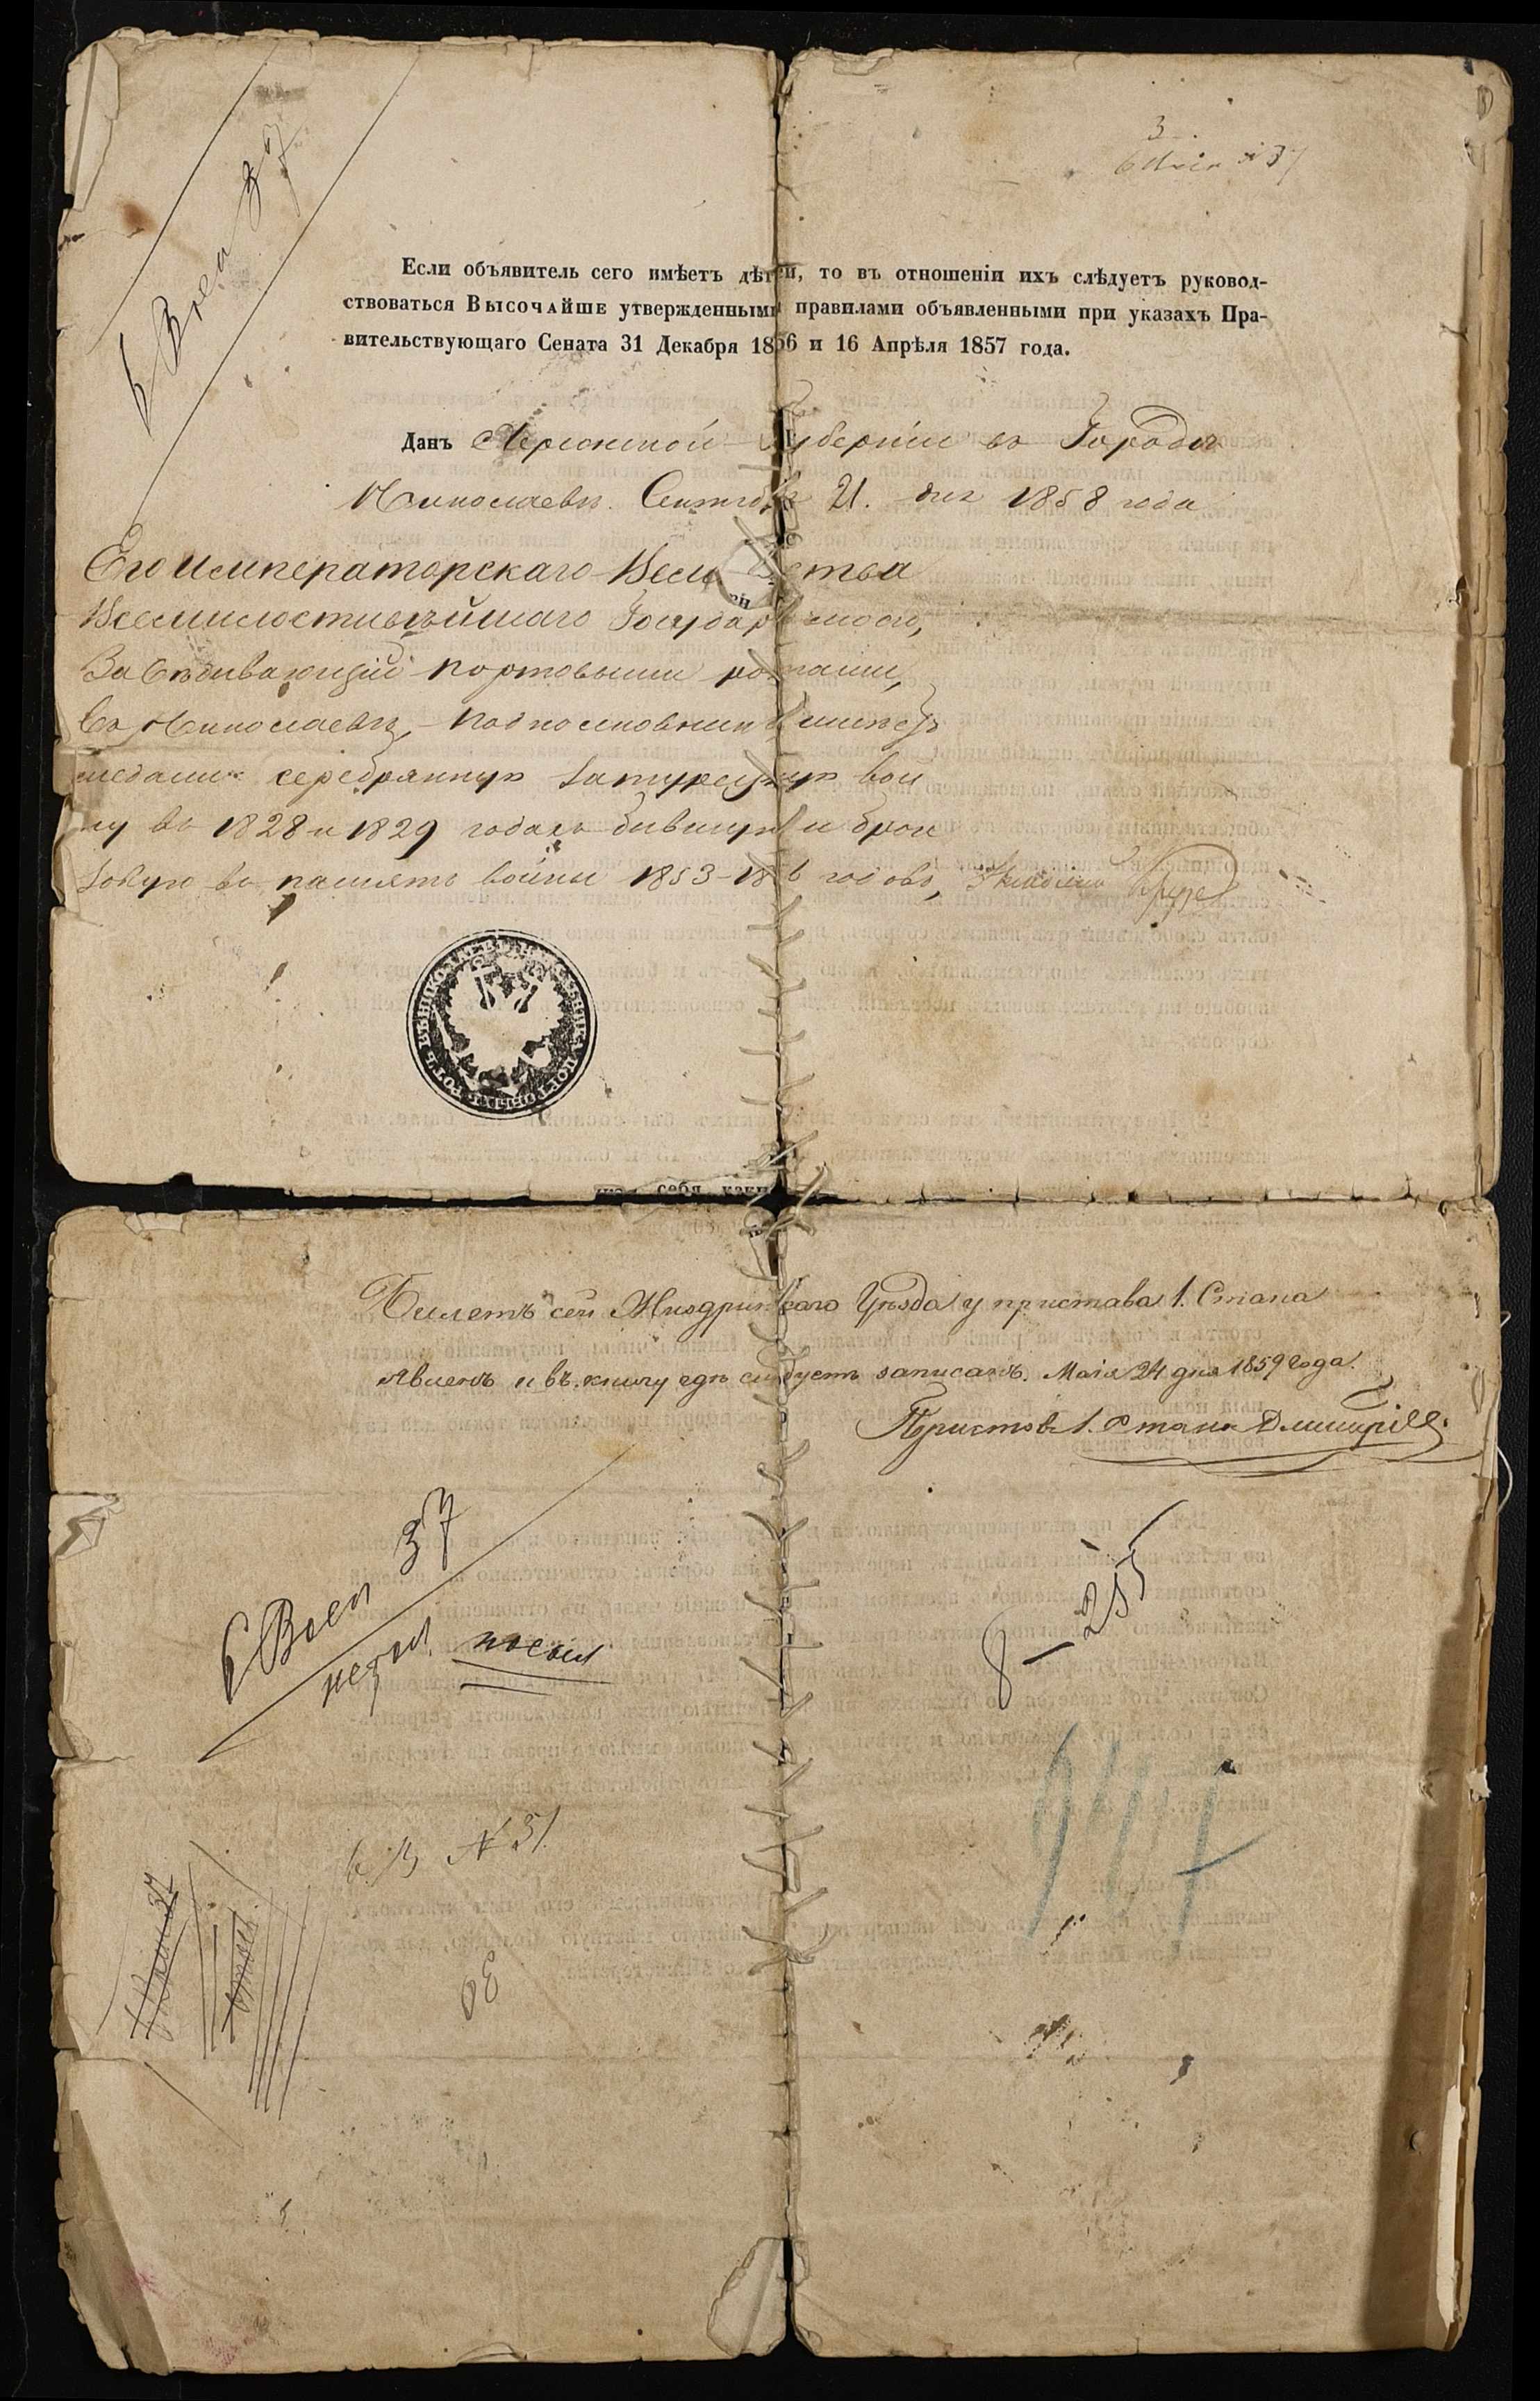 6 Воен 37
3
Если объявитель сего имѣетъ дѣтей, то въ отношеніи ихъ слѣдуетъ руковод-
ствоваться Высочайше утвержденными правилами объявленными при указахъ Пра-
вительствующаго Сената 31 Декабря 1856 и 16 Апрѣля 1857 года.
Данъ Херсонской Губерніи въ Городѣ
Николаевѣ. Сентября 21. дня 1858 года
Его Императорскаго Величества
Всемилостивѣйшаго Государя моего,
Завѣдывающій портовыми ротами,
въ Николаевѣ, Подполковникъ имѣетъ
медали: серебрянную за турецкую вой
ну въ 1828 и 1829 годахъ бывшую и брон
зовую въ память войны 1853-1856 годовъ,
себя каки
Билетъ сей Жиздринскаго Уѣзда у пристава 1. Стана
явленъ и въ книгу гдѣ слѣдуетъ записанъ. Маія 24 дня 1859 года.
Приставъ 1. Стана Дмитріев
6 Воен 37
8-255
6 В N 37